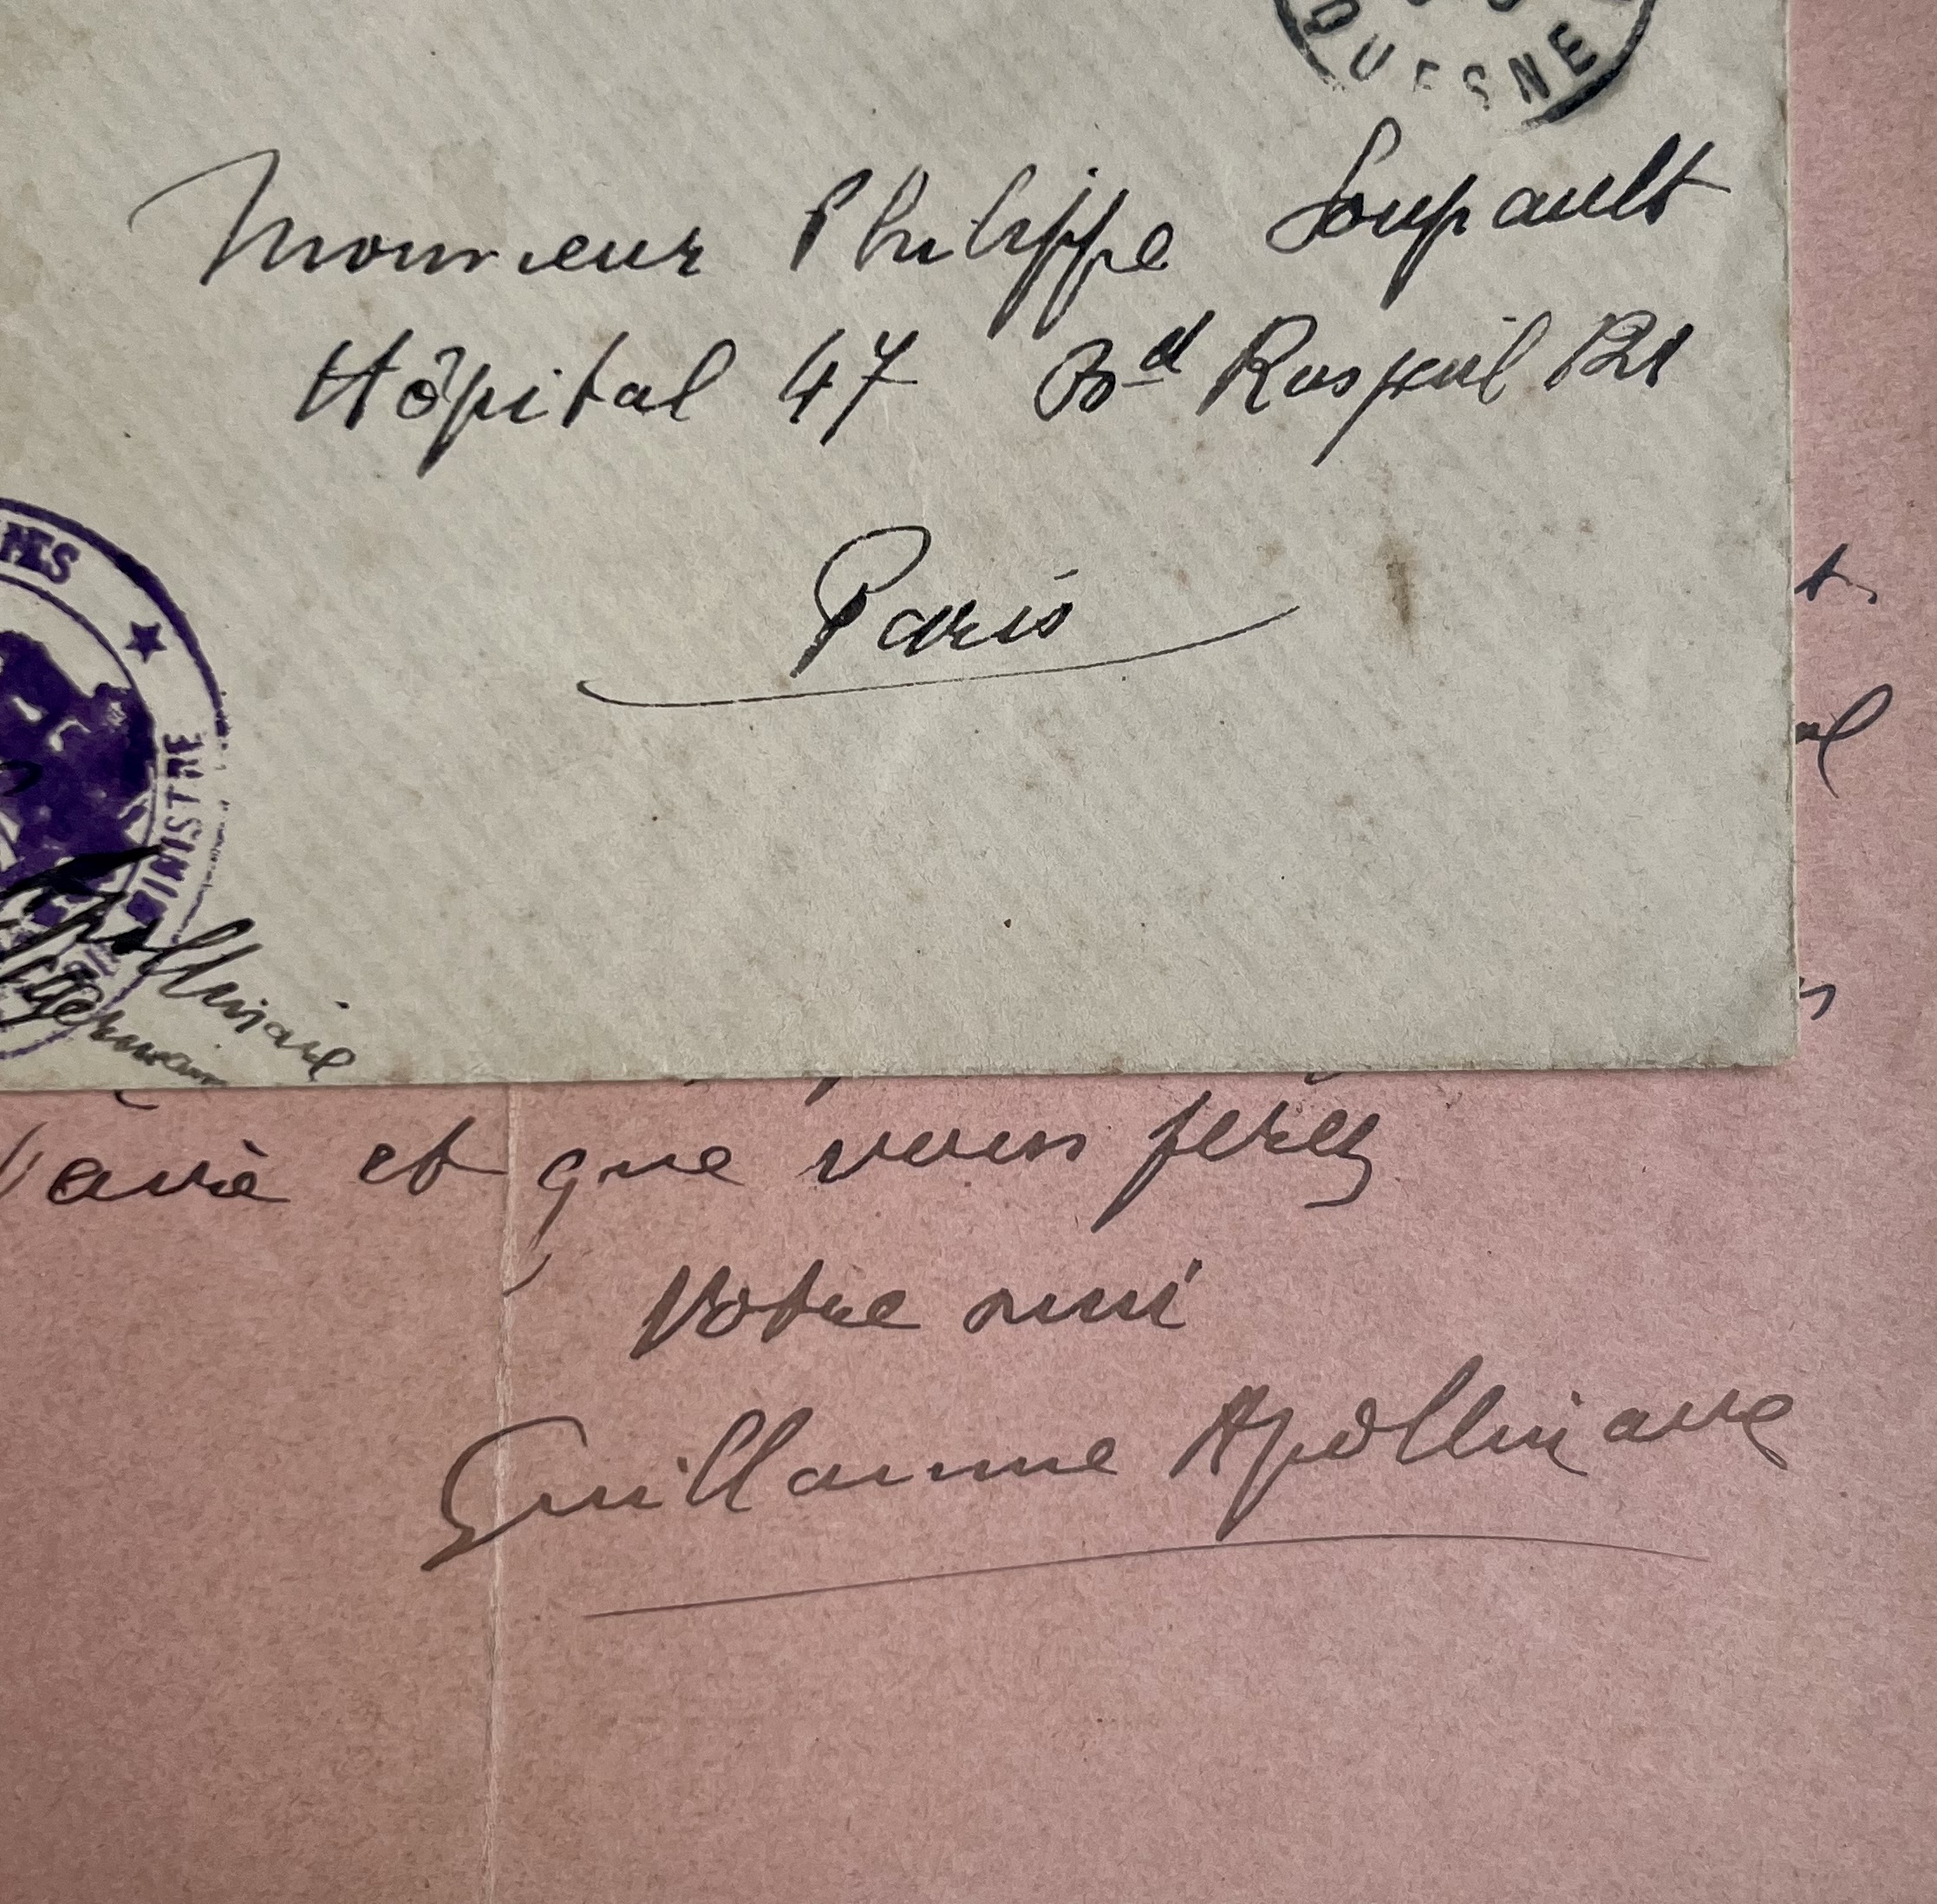 DUESNE
Monsieur Philippe Soupault
Hôpital 47 Bd Raspail 121
Paris
MES ★ MINISTRE
Apollinaire
Germain
et que vous ferez
Votre ami
Guillaume Apollinaire